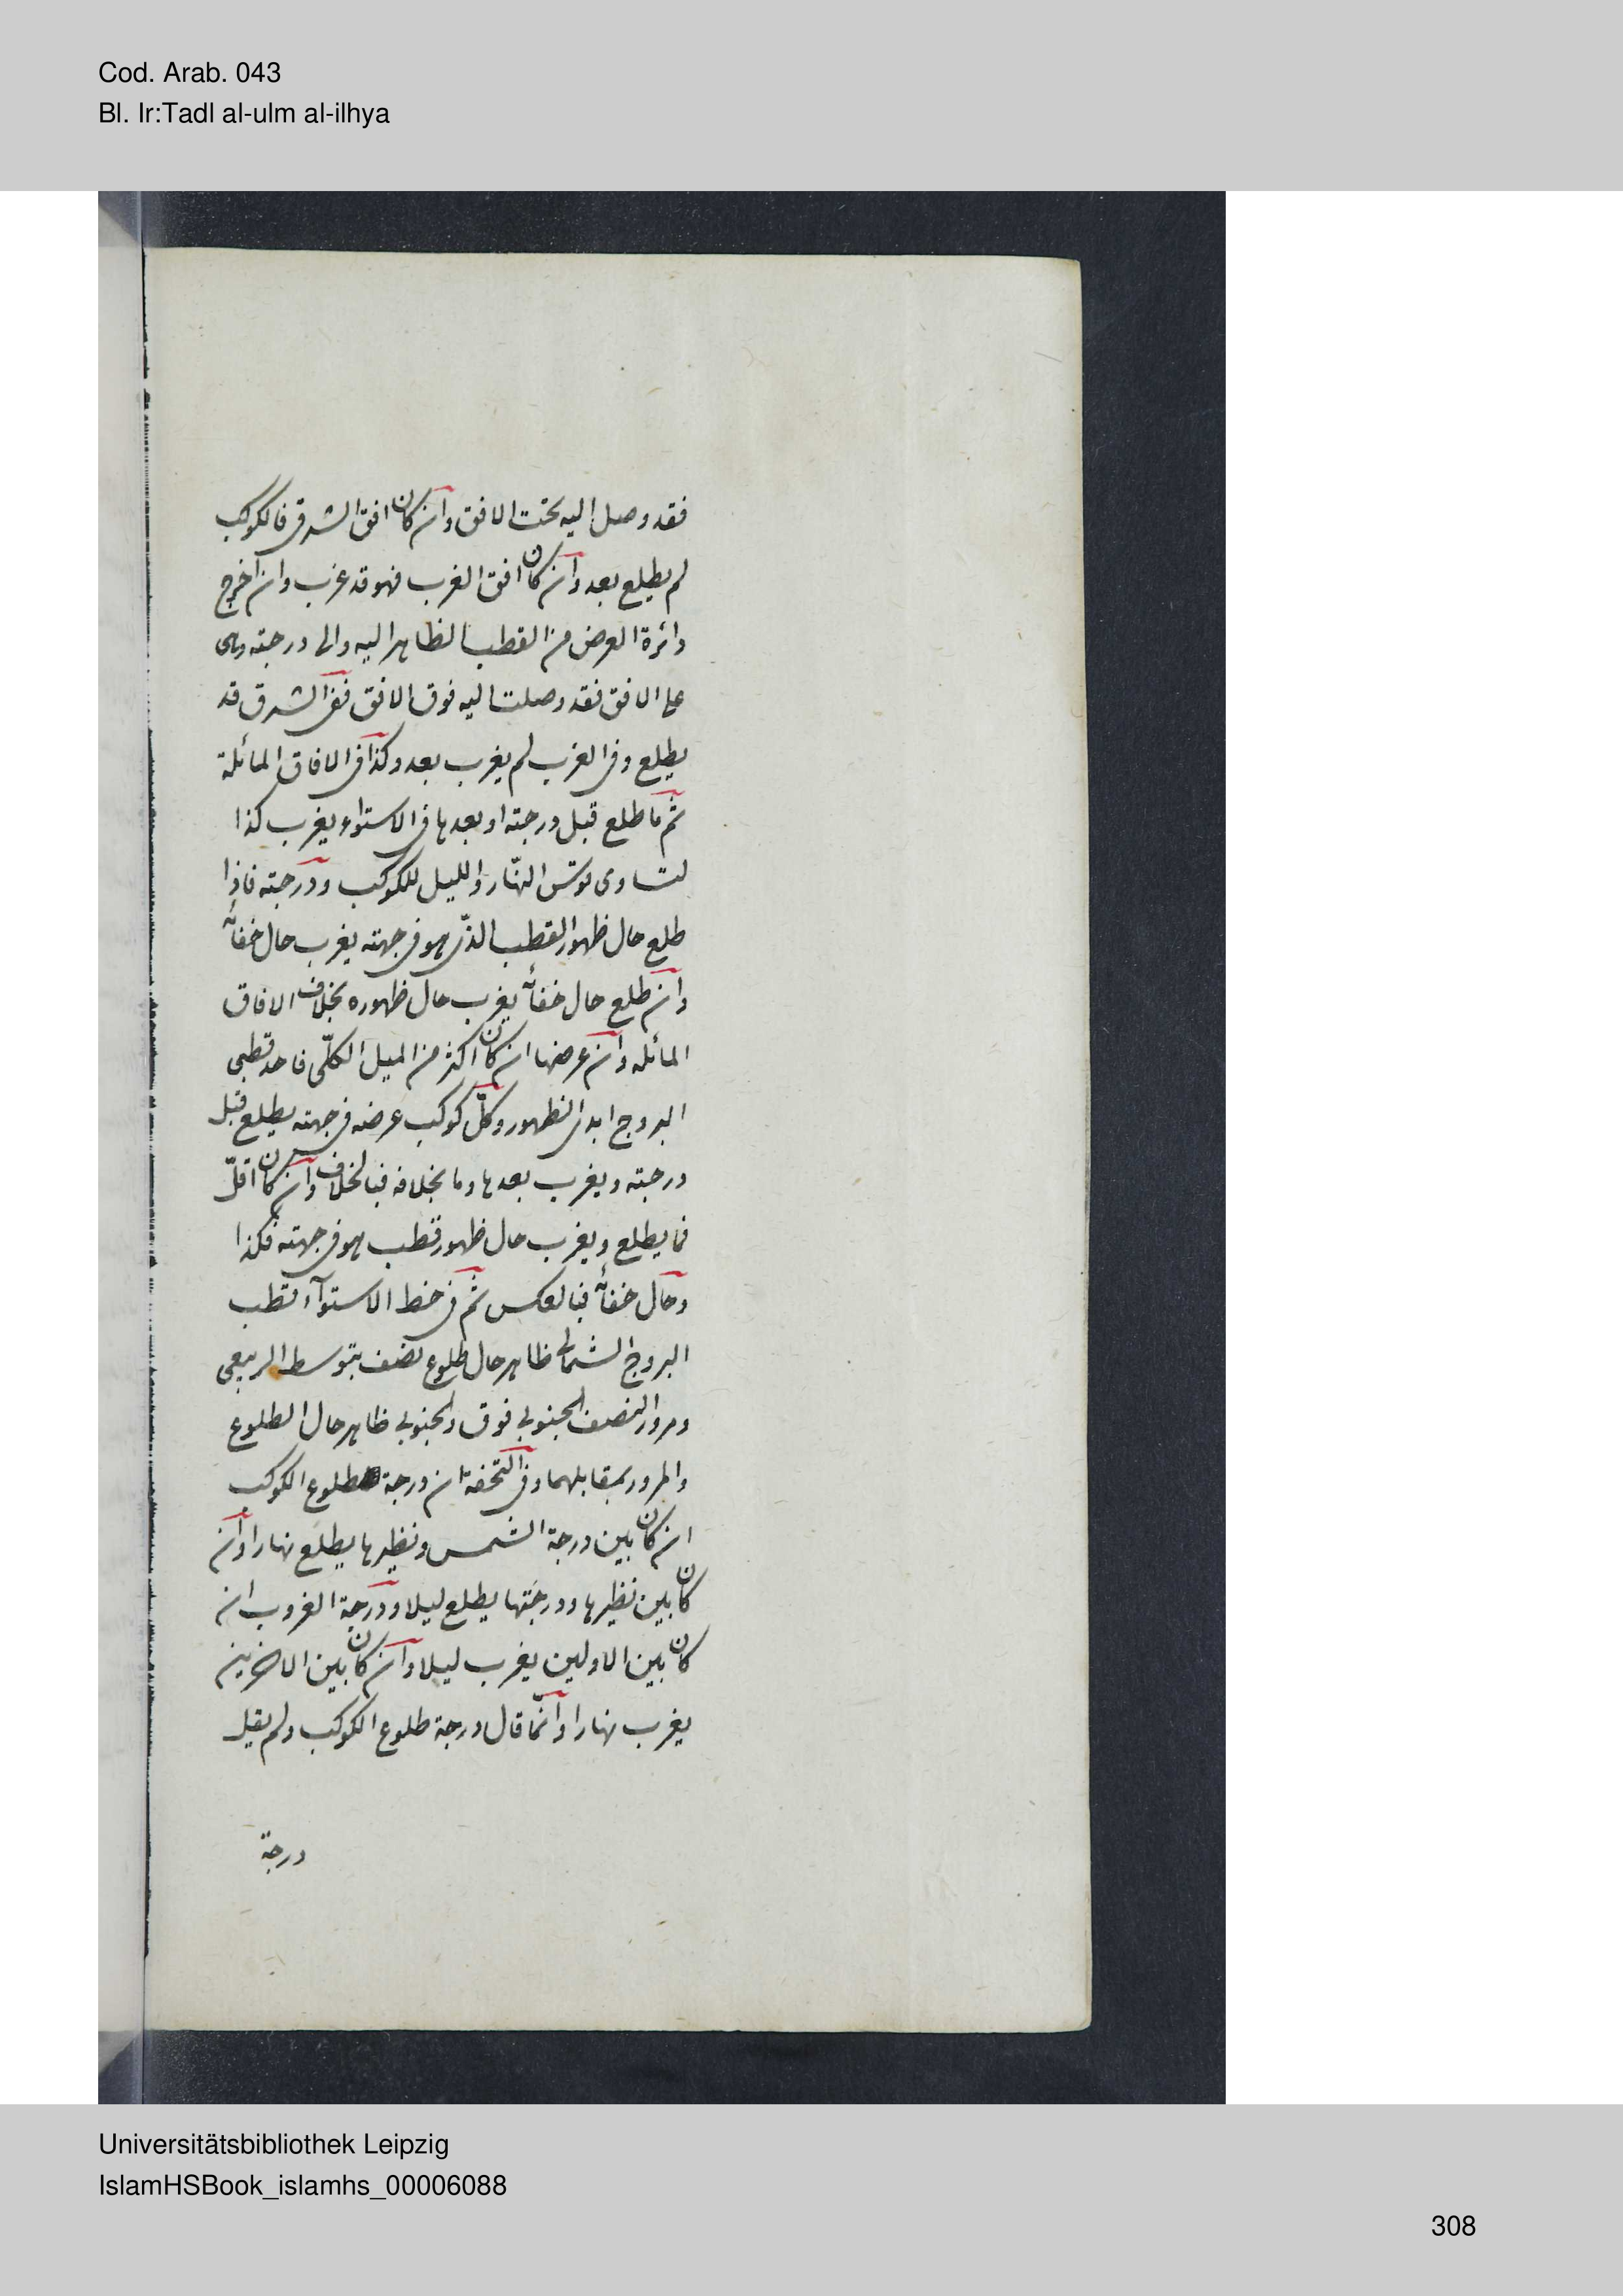 Cod. Arab. 043
Bl. Ir:Tadl al-ulm al-ilhya
فقد وصل اليه تحت الافق وان كان افق الشرق فالكوكب
لم يطلع بعد وان كان افق الغرب فهو قد غرب وان اخرج
دائرة العرض من القطب الظاهر اليه والى درجته وهى
على الافق فقد وصلت اليه فوق الافق ففى الشرق قد
يطلع وفى الغرب لم يغرب بعد وكذا فى الافاق المائلة
ثم ما طلع قبل درجته او بعدها فى الاستواء يغرب كذا
لتساوى قوسى النهار والليل للكوكب ودرجته فاذا
طلع حال ظهور القطب الذى هو فى جهته يغرب حال خفائه
وان طلع حال خفائه يغرب حال ظهوره بخلاف الافاق
المائله وان عرضها ان كان اكثر من الميل الكلّى فاحد قطبى
البروج ابدى الظهور وكلّ كوكب عرضه فى جهته يطلع قبل
درجته ويغرب بعدها وما بخلافه فبالخلاف وان كان اقلّ
فما يطلع ويغرب حال ظهور قطب هو فى جهته فكذا
وحال خفائه فبالعكس ثم فى خط الاستوآء قطب
البروج الشمالى ظاهر حال طلوع نصف بتوسط الربيعى
ومرور النصف الجنوبى فوق والجنوبى ظاهر حال الطلوع
والمرور بمقابلهما وفى التحفة ان درجة طلوع الكوكب
ان كان بين درجة الشمس ونظيرها يطلع نهارا وان
كان بين نظيرها ودرجتها يطلع ليلا ودرجة الغروب ان
كان بين الاولين يغرب ليلا وان كان بين الاخرين
يغرب نهارا وانّما قال درجة طلوع الكوكب ولم يقل
درجة
Universitätsbibliothek Leipzig
IslamHSBook_islamhs_00006088
308